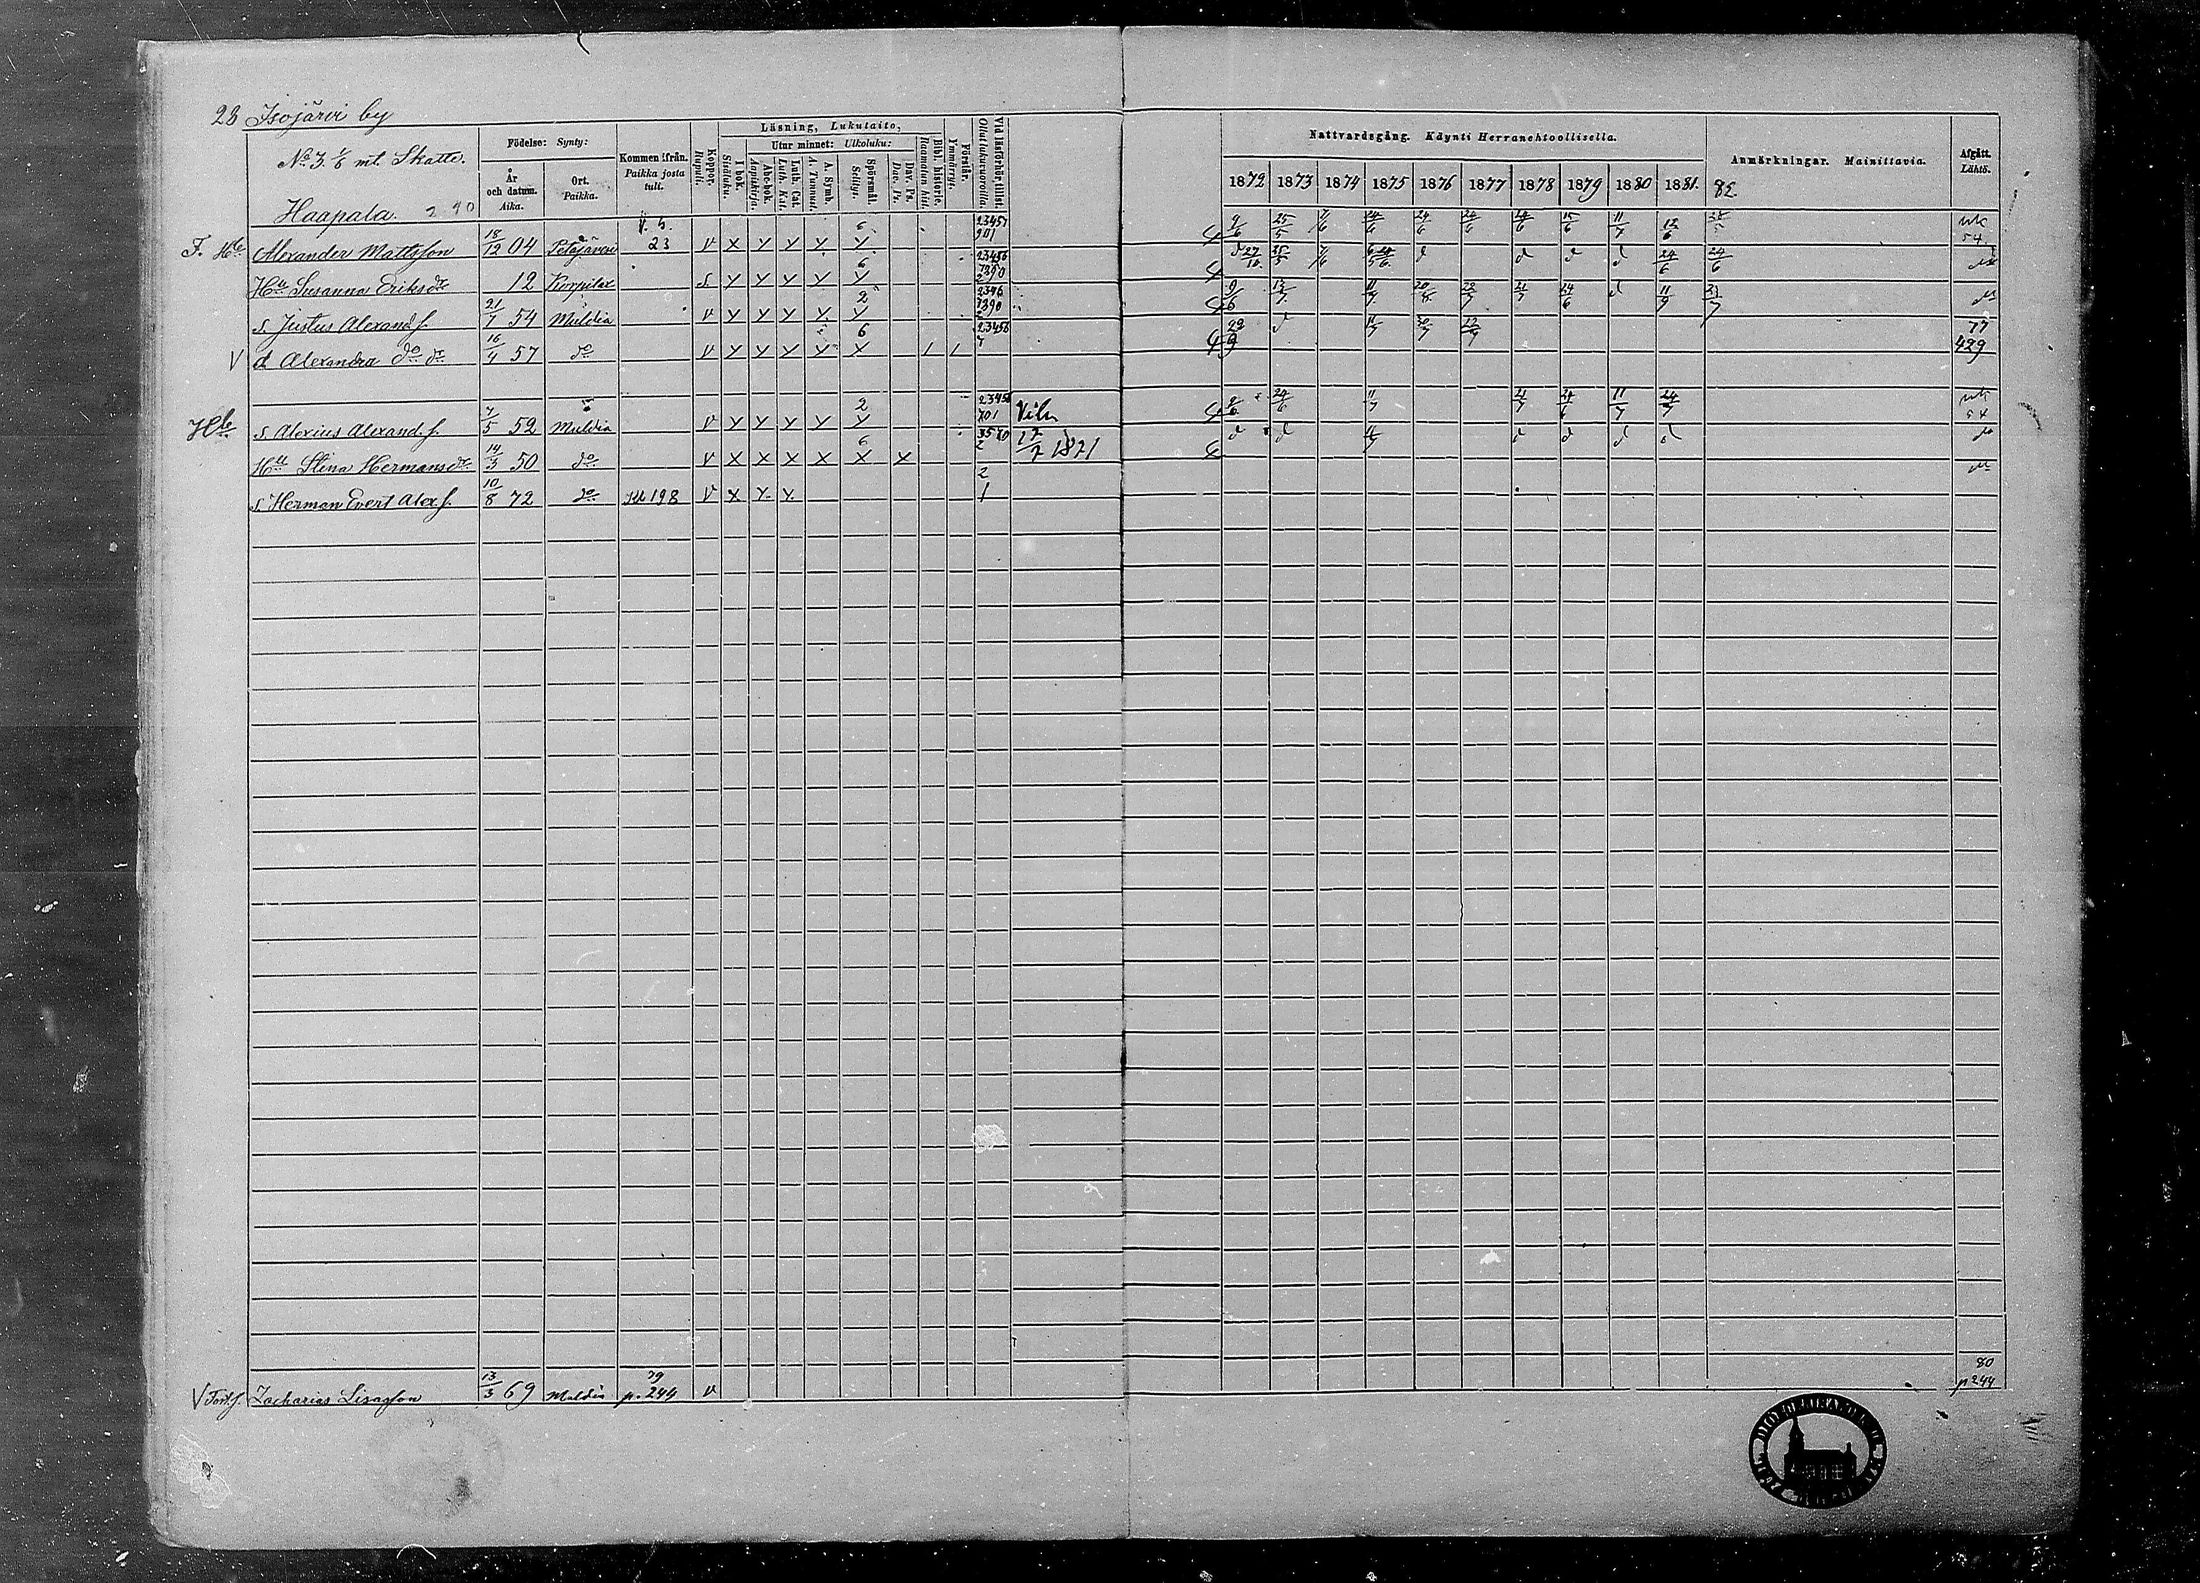 28 Isojärvi by
No 3. 1/6 mt. Skatte.
Haapala. 240
Födelse: Synty:
År och datum. Aika.
Ort. Paikka.
Kommen ifrån. Paikka josta tuli.
Koppor. Rupuli.
Läsning, Lukutaito,
I bok. Sisäluku.
Utur minnet: Ulkoluku:
Abc-bok. Aapiskirja.
Luth. Cat. Luth. Kat.
A. Symb. A. Tunnust.
Spörsmål. Selitys.
Dav. Ps. Dav. Ps.
Bibl. historie. Raamatun hist.
Förstår. Ymmärrys.
Vid läsförhör tillst. Ollut lukuvuoroilla.
Nattvardsgång. Käynti Herranehtoollisella.
1872 1873 1874 1875 1876 1877 1878 1879 1880 1881. 82.
Anmärkningar. Mainittavia.
Afgått. Lähtö.
F. Hbe Alexander Mattsson 18/12 04 Petäjävesi 23 v x y y y y 6 23457 901 9/6 25/5 7/6 24/6 24/6 24/6 24/6 15/6 11/7 12/6 54
Hu Susanna Eriksdr 12 Korpilax s y y y y y 6 23456 7890 27/10 25/5 7/6 d d d d 24/6 24/6
s. Justus Alexand.s. 21/7 54 Muldia v y y y y y 2 2346 7890 9/6 13/7 11/7 20/8 22/7 21/7 24/6 d 11/9 21/7
V d. Alexandra do dr 16/4 57 do v y y y y x 6 1 1 23456 7 29/9 d 11/7 30/7 12/9 77 429
Hbe s. Alexius Alexand.s. 7/5 52 Muldia v y y y y y 2 23456 701 Vihr 9/6 24/6 11/7 21/7 24/6 11/7 24/7 54
Hu Stina Hermansdr 14/3 50 do v x x x x x 6 x 3580 2 12/7 1871 d d 11/7 d d d d
s. Herman Evert Alex.s. 10/8 72 do 198 v x y x 2 1
V Fost.s. Zacharias Lisasson 13/3 69 Muldia 79 p. 244 v 80 p 244